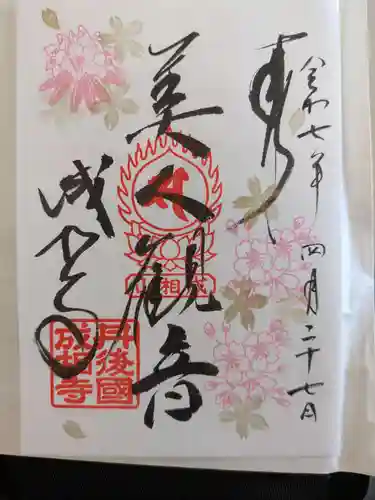 令和七年四月二十七日
奉
美人観音
成相
成相寺
丹後國
成相寺